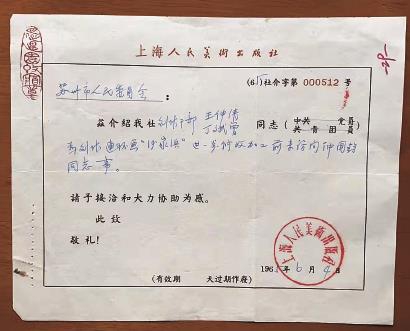 上海人民美術出版社
(65)社介字第 000512 号
苏州市人民委员会：
茲介紹我社創作干部 王仲清 丁斌曾 同志（中共 党員 共青团員）
为创作連环画"沙家浜"进一步修改加工 前去
同志 事。
請予接洽和大力协助为感。
此致
敬礼！
上海人民美術出版社
1965年6月4日
(有效期 天过期作废)